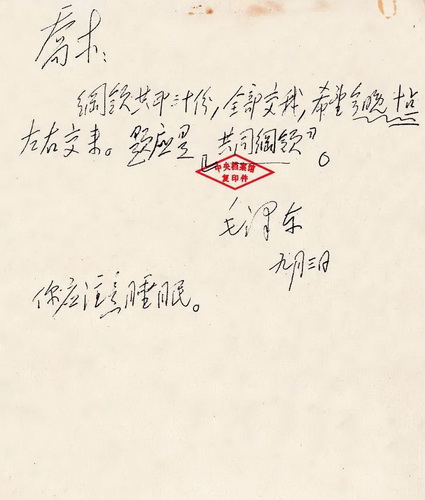 喬木：
綱领共印卅份，全部交我，希望今晚十点
左右交来。题应是『共同綱领』。
中央档案馆
复印件
毛泽东
九月三日
你应注意睡眠。